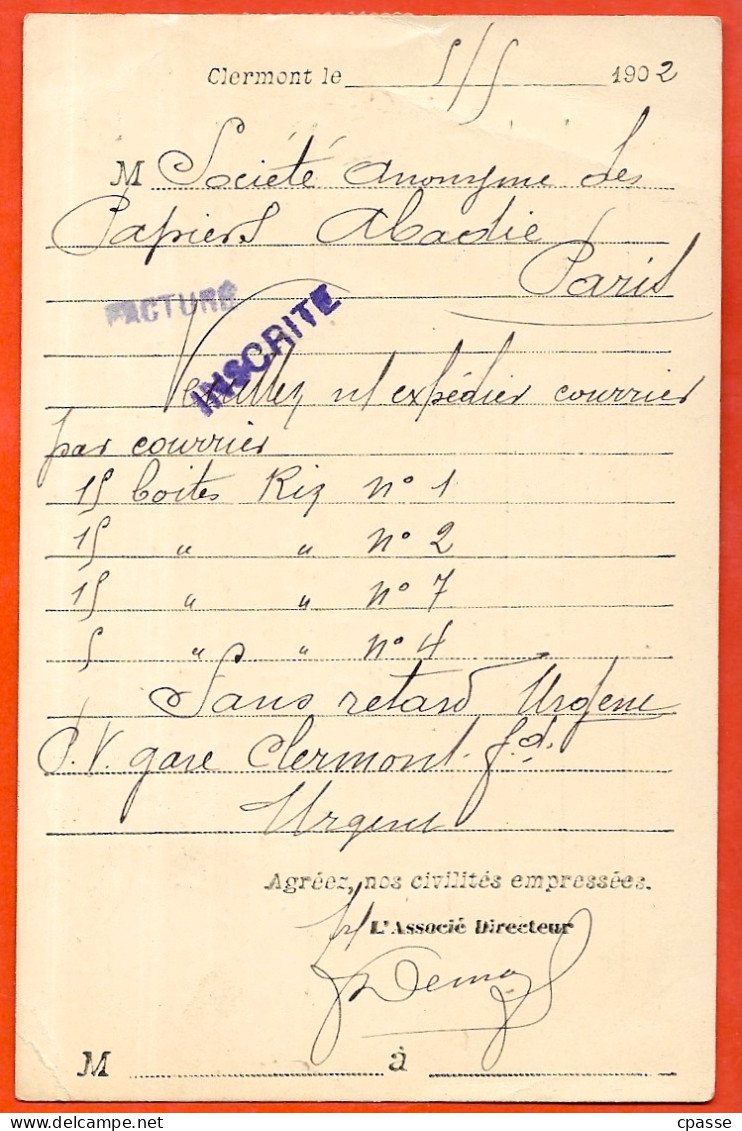 Clermont le 5/5 1902
M Société Anonyme des
Papiers Abadie
Paris
FACTURE
INSCRITE
Veuillez m'expédier courrier
par courrier
15 boites Riz n° 1
15 " " n° 2
15 " " n° 7
5 " " n° 4
Sans retard Urgent
P.V. gare Clermont-fd.
Urgent
Agréez, nos civilités empressées.
L'Associé Directeur
M à
cpasse